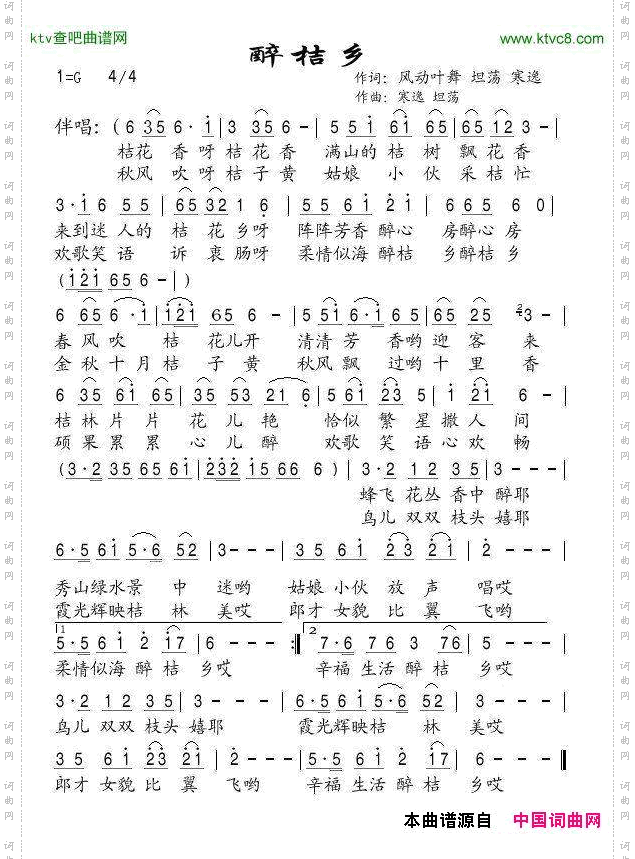 ktv查吧曲谱网 www.ktvc8.com
醉桔乡
1=G 4/4 作词：风动叶舞 坦荡 寒逸
作曲：寒逸 坦荡
伴唱：( 6 35 6 · i | 3 35 6 - | 5 5 i 6i 65 | 65 12 3 - |
桔花 香呀 桔花香 满山的 桔树 飘花香
秋风 吹呀 桔子黄 姑娘 小伙 采桔忙
3 · i 6 5 5 | 65 32 1 6 | 5 5 6 i 2 i | 6 5 6 0 |
来到迷人的 桔花乡呀 阵阵芳香醉心 房醉心房
欢歌笑语 诉衷肠呀 柔情似海醉桔 乡醉桔乡
( i2i 65 6 - )
6 65 6 · i | i2i 65 6 - | 5 5i 6 · i 6 5 | 65 25 3 - |
春风吹 桔花儿开 清清芳香哟迎客来
金秋十月桔子黄 秋风飘过哟十里香
6 35 6i 65 | 35 53 21 6 | 56i 6i 23 5 | i2i 2i 6 - |
桔林片片花儿艳 恰似繁星撒人间
硕果累累心儿醉 欢歌笑语心欢畅
( 3 · 2 35 65 6i | 232 i5 66 6 ) | 3 · 2 1 2 3 5 | 3 - - - |
蜂飞花丛香中醉耶
鸟儿双双枝头嬉耶
6 · 5 6i 5 · 6 52 | 3 - - - | 35 6i 23 2i | 2 - - - |
秀山绿水景中迷哟 姑娘小伙放声唱哎
霞光辉映桔林美哎 郎才女貌比翼飞哟
1 2
5 · 5 6i 2 i7 | 6 - - - :| 7 · 6 7 6 3 76 | 5 - - - |
柔情似海醉桔乡哎 幸福生活醉桔乡哎
3 · 2 12 35 | 3 - - - | 6 · 5 6i 5 · 6 52 | 3 - - - |
鸟儿双双枝头嬉耶 霞光辉映桔林美哎
35 6i 23 2i | 2 - - - | 5 · 5 6i 2 i7 | 6 - - - ‖
郎才女貌比翼飞哟 幸福生活醉桔乡哎
本曲谱源自 中国词曲网